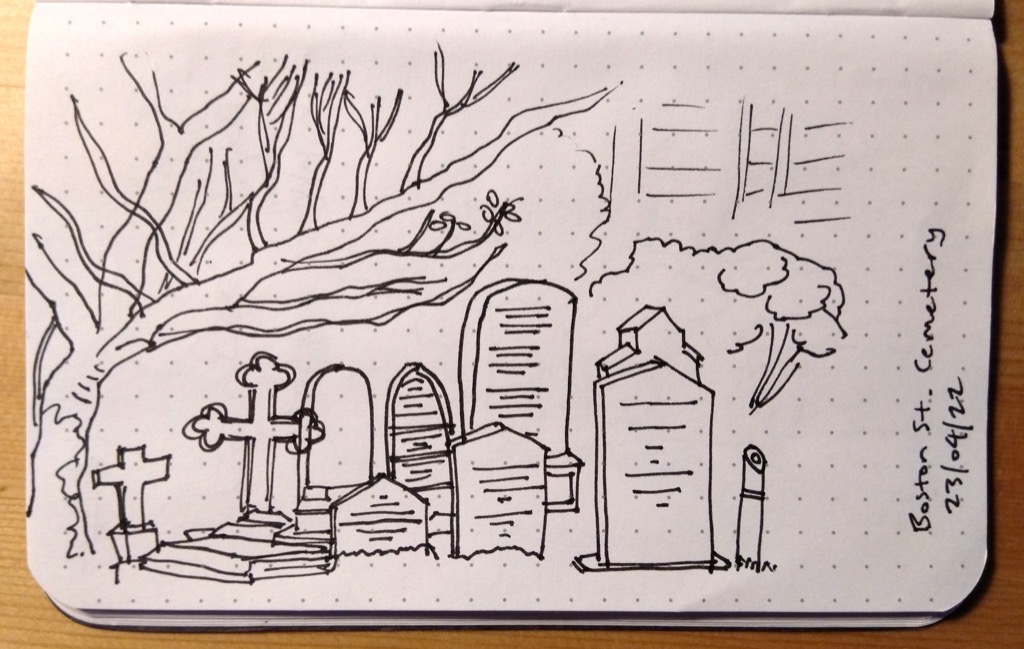 Boston St. Cemetery
23/04/22